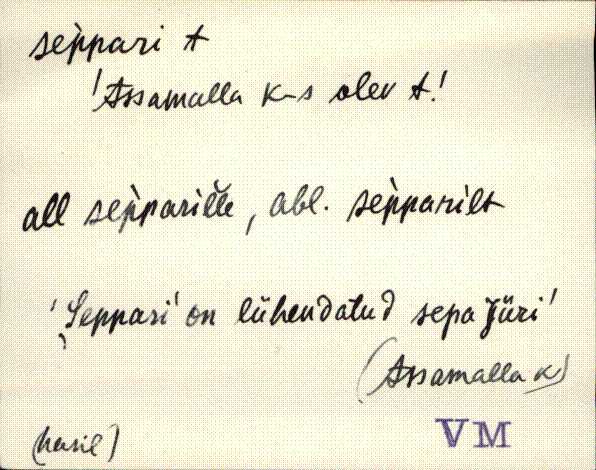 seppari t
'Assamalla k-s olev t.'
all sepparille, abl. sepparilt
'Seppari' on lühendatud sepa Jüri'
(Assamalla k)
VM